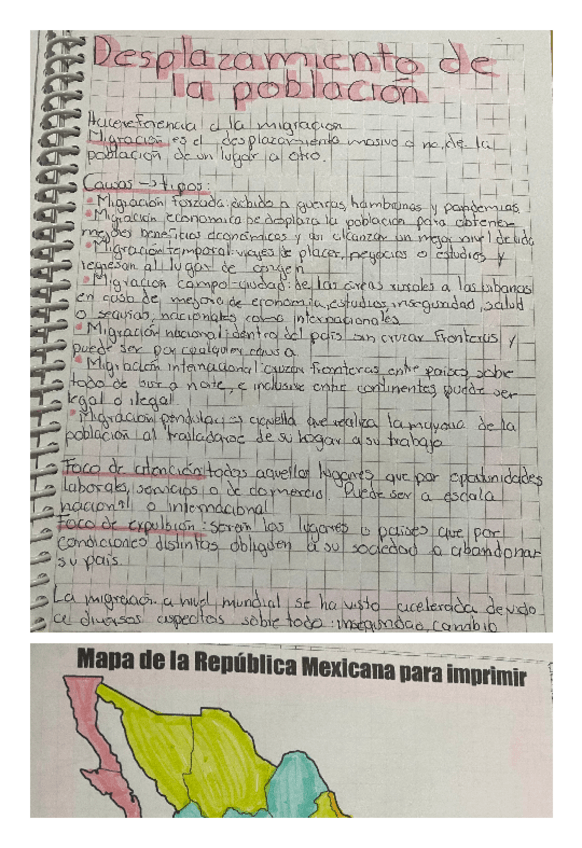 Desplazamiento de
la población
Hace referencia a la migración
Migración es el desplazamiento masivo o no, de la
población de un lugar a otro.
Causas → tipos:
• Migración forzada: debido a guerras, hambrunas y pandemias
• Migración económica se desplaza la población para obtener
mejores beneficios económicos y así alcanzar un mejor nivel de vida
• Migración temporal: viajes de placer, negocios o estudios y
regresan al lugar de origen
• Migración campo-ciudad: de las áreas rurales a las urbanas
en busca de mejora de economía, estudios, inseguridad, salud
o sequías, nacionales como internacionales
• Migración nacional: dentro del país sin cruzar fronteras y
puede ser por cualquier causa
• Migración internacional: cruzar fronteras entre países sobre
todo de sur a norte, e inclusive entre continentes puede ser
legal o ilegal.
• Migración pendular: es aquella que realiza la mayoria de la
población al trasladarse de su hogar a su trabajo
Foco de atención: todos aquellos lugares que por oportunidades
laborales, servicios o de comercio. Puede ser a escala
nacional o internacional
Foco de expulsión: serán los lugares o países que por
condiciones distintas obliguen a su sociedad a abandonar
su país
La migración a nivel mundial se ha visto acelerada devido
a diversos aspectos sobre todo: inseguridad, cambio
Mapa de la República Mexicana para imprimir